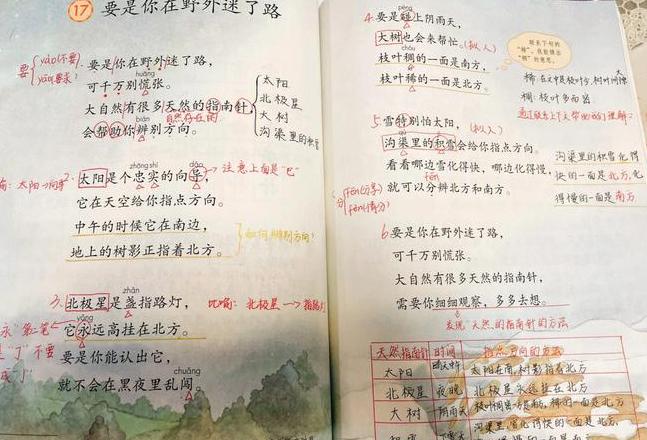 17 要是你在野外迷了路
要 yào(不要)
yāo(要求)
要是你在野外迷了路，
huāng
可千万别慌张。
大自然有很多天然的指南针，
自然存在的
biàn
会帮助你辨别方向。
太阳
北极星
大树
沟渠里的积雪
zhōng shí dǎo
2.太阳是个忠实的向导，
注意上面是“巳”
它在天空给你指点方向。
中午的时候它在南边，
地上的树影正指着北方。
如何辨别方向？
zhǎn
3.北极星是盏指路灯，
比喻：北极星→指路灯
yǒng
它永远高挂在北方。
要是你能认出它，
chuǎng
就不会在黑夜里乱闯。
pèng
4.要是碰上阴雨天，
大树也会来帮忙。(拟人)
chóu
枝叶稠的一面是南方，
枝叶稀的一面是北方。
稀：
稠：枝叶多而密
5.雪特别怕太阳，(拟人)
沟渠里的积雪会给你指点方向。
看看哪边雪化得快，哪边化得慢，
fēn
就可以分辨北方和南方。
分 fēn(分享)
fèn(情分)
沟渠里的积雪化得
快的一面是北方,化
得慢的一面是南方
6.要是你在野外迷了路，
可千万别慌张。
大自然有很多天然的指南针，
需要你细细观察，多多去想。
发现“天然的指南针的方法
天然指南针 时间 指点方向的方法
太阳 晴天中午 太阳在南,树影指着北方
北极星 夜晚 北极星永远挂在北方
大树 阴雨天 枝叶稠密一方是南,稀的一面是北方